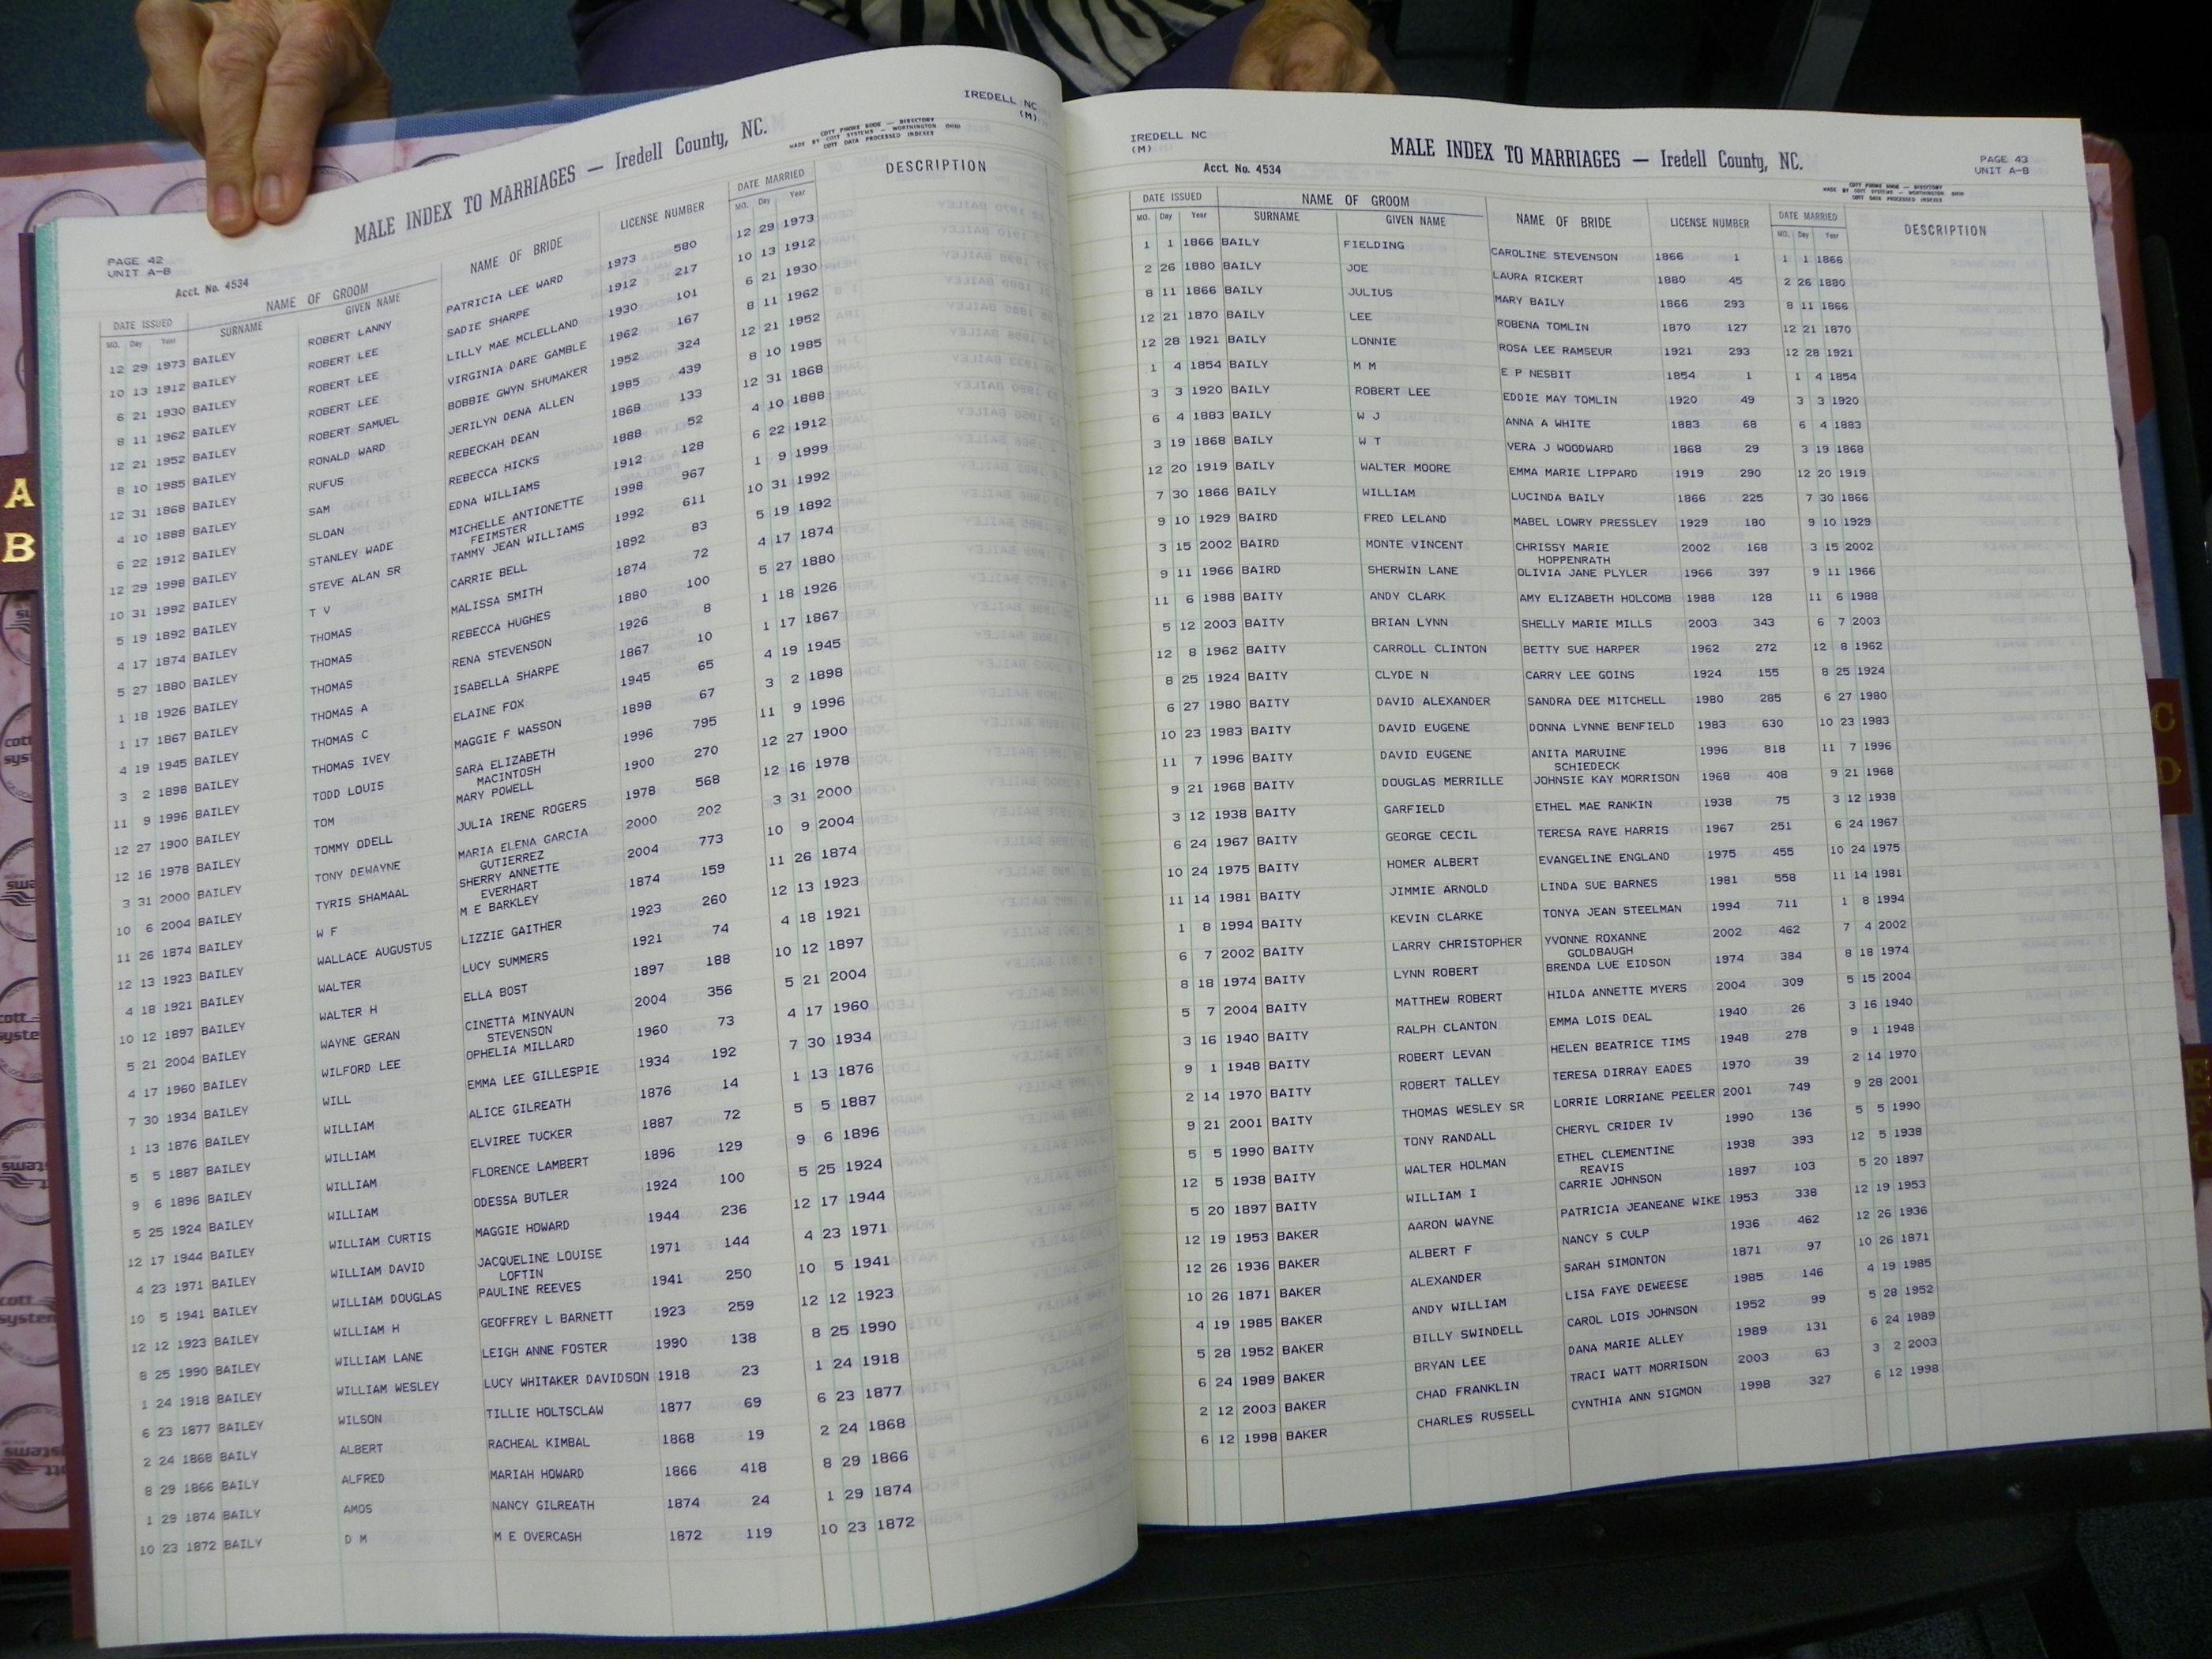 PAGE 42
UNIT A-B
MALE INDEX TO MARRIAGES — Iredell County, NC.
IREDELL NC
(M)
Acct. No. 4534
COTT PHONE BOOK — DIRECTORY
MADE BY COTT SYSTEMS — WORTHINGTON OHIO
COTT DATA PROCESSED INDEXES
DATE ISSUED NAME OF GROOM NAME OF BRIDE LICENSE NUMBER DATE MARRIED DESCRIPTION
MO. Day Year SURNAME GIVEN NAME MO. Day Year
12 29 1973 BAILEY ROBERT LANNY PATRICIA LEE WARD 1973 580 12 29 1973
10 13 1912 BAILEY ROBERT LEE SADIE SHARPE 1912 217 10 13 1912
6 21 1930 BAILEY ROBERT LEE LILLY MAE MCLELLAND 1930 101 6 21 1930
8 11 1962 BAILEY ROBERT LEE VIRGINIA DARE GAMBLE 1962 167 8 11 1962
12 21 1952 BAILEY ROBERT SAMUEL BOBBIE GWYN SHUMAKER 1952 324 12 21 1952
8 10 1985 BAILEY RONALD WARD JERILYN DENA ALLEN 1985 439 8 10 1985
12 31 1868 BAILEY RUFUS REBECKAH DEAN 1868 133 12 31 1868
4 10 1888 BAILEY SAM REBECCA HICKS 1888 52 4 10 1888
6 22 1912 BAILEY SLOAN EDNA WILLIAMS 1912 128 6 22 1912
12 29 1998 BAILEY STANLEY WADE MICHELLE ANTIONETTE 1998 967 1 9 1999
FEIMSTER
10 31 1992 BAILEY STEVE ALAN SR TAMMY JEAN WILLIAMS 1992 611 10 31 1992
5 19 1892 BAILEY T V CARRIE BELL 1892 83 5 19 1892
4 17 1874 BAILEY THOMAS MALISSA SMITH 1874 72 4 17 1874
5 27 1880 BAILEY THOMAS REBECCA HUGHES 1880 100 5 27 1880
1 18 1926 BAILEY THOMAS RENA STEVENSON 1926 8 1 18 1926
1 17 1867 BAILEY THOMAS A ISABELLA SHARPE 1867 10 1 17 1867
4 19 1945 BAILEY THOMAS C ELAINE FOX 1945 65 4 19 1945
3 2 1898 BAILEY THOMAS IVEY MAGGIE F WASSON 1898 67 3 2 1898
11 9 1996 BAILEY TODD LOUIS SARA ELIZABETH 1996 795 11 9 1996
MACINTOSH
12 27 1900 BAILEY TOM MARY POWELL 1900 270 12 27 1900
12 16 1978 BAILEY TOMMY ODELL JULIA IRENE ROGERS 1978 568 12 16 1978
3 31 2000 BAILEY TONY DEWAYNE MARIA ELENA GARCIA 2000 202 3 31 2000
GUTIERREZ
10 6 2004 BAILEY TYRIS SHAMAAL SHERRY ANNETTE 2004 773 10 9 2004
EVERHART
11 26 1874 BAILEY W F M E BARKLEY 1874 159 11 26 1874
12 13 1923 BAILEY WALLACE AUGUSTUS LIZZIE GAITHER 1923 260 12 13 1923
4 18 1921 BAILEY WALTER LUCY SUMMERS 1921 74 4 18 1921
10 12 1897 BAILEY WALTER H ELLA BOST 1897 188 10 12 1897
5 21 2004 BAILEY WAYNE GERAN CINETTA MINYAUN 2004 356 5 21 2004
STEVENSON
4 17 1960 BAILEY WILFORD LEE OPHELIA MILLARD 1960 73 4 17 1960
7 30 1934 BAILEY WILL EMMA LEE GILLESPIE 1934 192 7 30 1934
1 13 1876 BAILEY WILLIAM ALICE GILREATH 1876 14 1 13 1876
5 5 1887 BAILEY WILLIAM ELVIREE TUCKER 1887 72 5 5 1887
9 6 1896 BAILEY WILLIAM FLORENCE LAMBERT 1896 129 9 6 1896
5 25 1924 BAILEY WILLIAM ODESSA BUTLER 1924 100 5 25 1924
12 17 1944 BAILEY WILLIAM CURTIS MAGGIE HOWARD 1944 236 12 17 1944
4 23 1971 BAILEY WILLIAM DAVID JACQUELINE LOUISE 1971 144 4 23 1971
LOFTIN
10 5 1941 BAILEY WILLIAM DOUGLAS PAULINE REEVES 1941 250 10 5 1941
12 12 1923 BAILEY WILLIAM H GEOFFREY L BARNETT 1923 259 12 12 1923
8 25 1990 BAILEY WILLIAM LANE LEIGH ANNE FOSTER 1990 138 8 25 1990
1 24 1918 BAILEY WILLIAM WESLEY LUCY WHITAKER DAVIDSON 1918 23 1 24 1918
6 23 1877 BAILEY WILSON TILLIE HOLTSCLAW 1877 69 6 23 1877
2 24 1868 BAILY ALBERT RACHEAL KIMBAL 1868 19 2 24 1868
8 29 1866 BAILY ALFRED MARIAH HOWARD 1866 418 8 29 1866
1 29 1874 BAILY AMOS NANCY GILREATH 1874 24 1 29 1874
10 23 1872 BAILY D M M E OVERCASH 1872 119 10 23 1872
IREDELL NC
(M)
MALE INDEX TO MARRIAGES — Iredell County, NC.
PAGE 43
UNIT A-B
Acct. No. 4534
COTT PHONE BOOK — DIRECTORY
MADE BY COTT SYSTEMS — WORTHINGTON OHIO
COTT DATA PROCESSED INDEXES
DATE ISSUED NAME OF GROOM NAME OF BRIDE LICENSE NUMBER DATE MARRIED DESCRIPTION
MO. Day Year SURNAME GIVEN NAME MO. Day Year
1 1 1866 BAILY FIELDING CAROLINE STEVENSON 1866 1 1 1 1866
2 26 1880 BAILY JOE LAURA RICKERT 1880 45 2 26 1880
8 11 1866 BAILY JULIUS MARY BAILY 1866 293 8 11 1866
12 21 1870 BAILY LEE ROBENA TOMLIN 1870 127 12 21 1870
12 28 1921 BAILY LONNIE ROSA LEE RAMSEUR 1921 293 12 28 1921
1 4 1854 BAILY M M E P NESBIT 1854 1 1 4 1854
3 3 1920 BAILY ROBERT LEE EDDIE MAY TOMLIN 1920 49 3 3 1920
6 4 1883 BAILY W J ANNA A WHITE 1883 68 6 4 1883
3 19 1868 BAILY W T VERA J WOODWARD 1868 29 3 19 1868
12 20 1919 BAILY WALTER MOORE EMMA MARIE LIPPARD 1919 290 12 20 1919
7 30 1866 BAILY WILLIAM LUCINDA BAILY 1866 225 7 30 1866
9 10 1929 BAIRD FRED LELAND MABEL LOWRY PRESSLEY 1929 180 9 10 1929
3 15 2002 BAIRD MONTE VINCENT CHRISSY MARIE 2002 168 3 15 2002
HOPPENRATH
9 11 1966 BAIRD SHERWIN LANE OLIVIA JANE PLYLER 1966 397 9 11 1966
11 6 1988 BAITY ANDY CLARK AMY ELIZABETH HOLCOMB 1988 128 11 6 1988
5 12 2003 BAITY BRIAN LYNN SHELLY MARIE MILLS 2003 343 6 7 2003
12 8 1962 BAITY CARROLL CLINTON BETTY SUE HARPER 1962 272 12 8 1962
8 25 1924 BAITY CLYDE N CARRY LEE GOINS 1924 155 8 25 1924
6 27 1980 BAITY DAVID ALEXANDER SANDRA DEE MITCHELL 1980 285 6 27 1980
10 23 1983 BAITY DAVID EUGENE DONNA LYNNE BENFIELD 1983 630 10 23 1983
11 7 1996 BAITY DAVID EUGENE ANITA MARUINE 1996 818 11 7 1996
SCHIEDECK
9 21 1968 BAITY DOUGLAS MERRILLE JOHNSIE KAY MORRISON 1968 408 9 21 1968
3 12 1938 BAITY GARFIELD ETHEL MAE RANKIN 1938 75 3 12 1938
6 24 1967 BAITY GEORGE CECIL TERESA RAYE HARRIS 1967 251 6 24 1967
10 24 1975 BAITY HOMER ALBERT EVANGELINE ENGLAND 1975 455 10 24 1975
11 14 1981 BAITY JIMMIE ARNOLD LINDA SUE BARNES 1981 558 11 14 1981
1 8 1994 BAITY KEVIN CLARKE TONYA JEAN STEELMAN 1994 711 1 8 1994
6 7 2002 BAITY LARRY CHRISTOPHER YVONNE ROXANNE 2002 462 7 4 2002
GOLDBAUGH
8 18 1974 BAITY LYNN ROBERT BRENDA LUE EIDSON 1974 384 8 18 1974
5 7 2004 BAITY MATTHEW ROBERT HILDA ANNETTE MYERS 2004 309 5 15 2004
3 16 1940 BAITY RALPH CLANTON EMMA LOIS DEAL 1940 26 3 16 1940
9 1 1948 BAITY ROBERT LEVAN HELEN BEATRICE TIMS 1948 278 9 1 1948
2 14 1970 BAITY ROBERT TALLEY TERESA DIRRAY EADES 1970 39 2 14 1970
9 21 2001 BAITY THOMAS WESLEY SR LORRIE LORRIANE PEELER 2001 749 9 28 2001
5 5 1990 BAITY TONY RANDALL CHERYL CRIDER IV 1990 136 5 5 1990
12 5 1938 BAITY WALTER HOLMAN ETHEL CLEMENTINE 1938 393 12 5 1938
REAVIS
5 20 1897 BAITY WILLIAM I CARRIE JOHNSON 1897 103 5 20 1897
12 19 1953 BAKER AARON WAYNE PATRICIA JEANEANE WIKE 1953 338 12 19 1953
12 26 1936 BAKER ALBERT F NANCY S CULP 1936 462 12 26 1936
10 26 1871 BAKER ALEXANDER SARAH SIMONTON 1871 97 10 26 1871
4 19 1985 BAKER ANDY WILLIAM LISA FAYE DEWEESE 1985 146 4 19 1985
5 28 1952 BAKER BILLY SWINDELL CAROL LOIS JOHNSON 1952 99 5 28 1952
6 24 1989 BAKER BRYAN LEE DANA MARIE ALLEY 1989 131 6 24 1989
2 12 2003 BAKER CHAD FRANKLIN TRACI WATT MORRISON 2003 63 3 2 2003
6 12 1998 BAKER CHARLES RUSSELL CYNTHIA ANN SIGMON 1998 327 6 12 1998
A
B
C
D